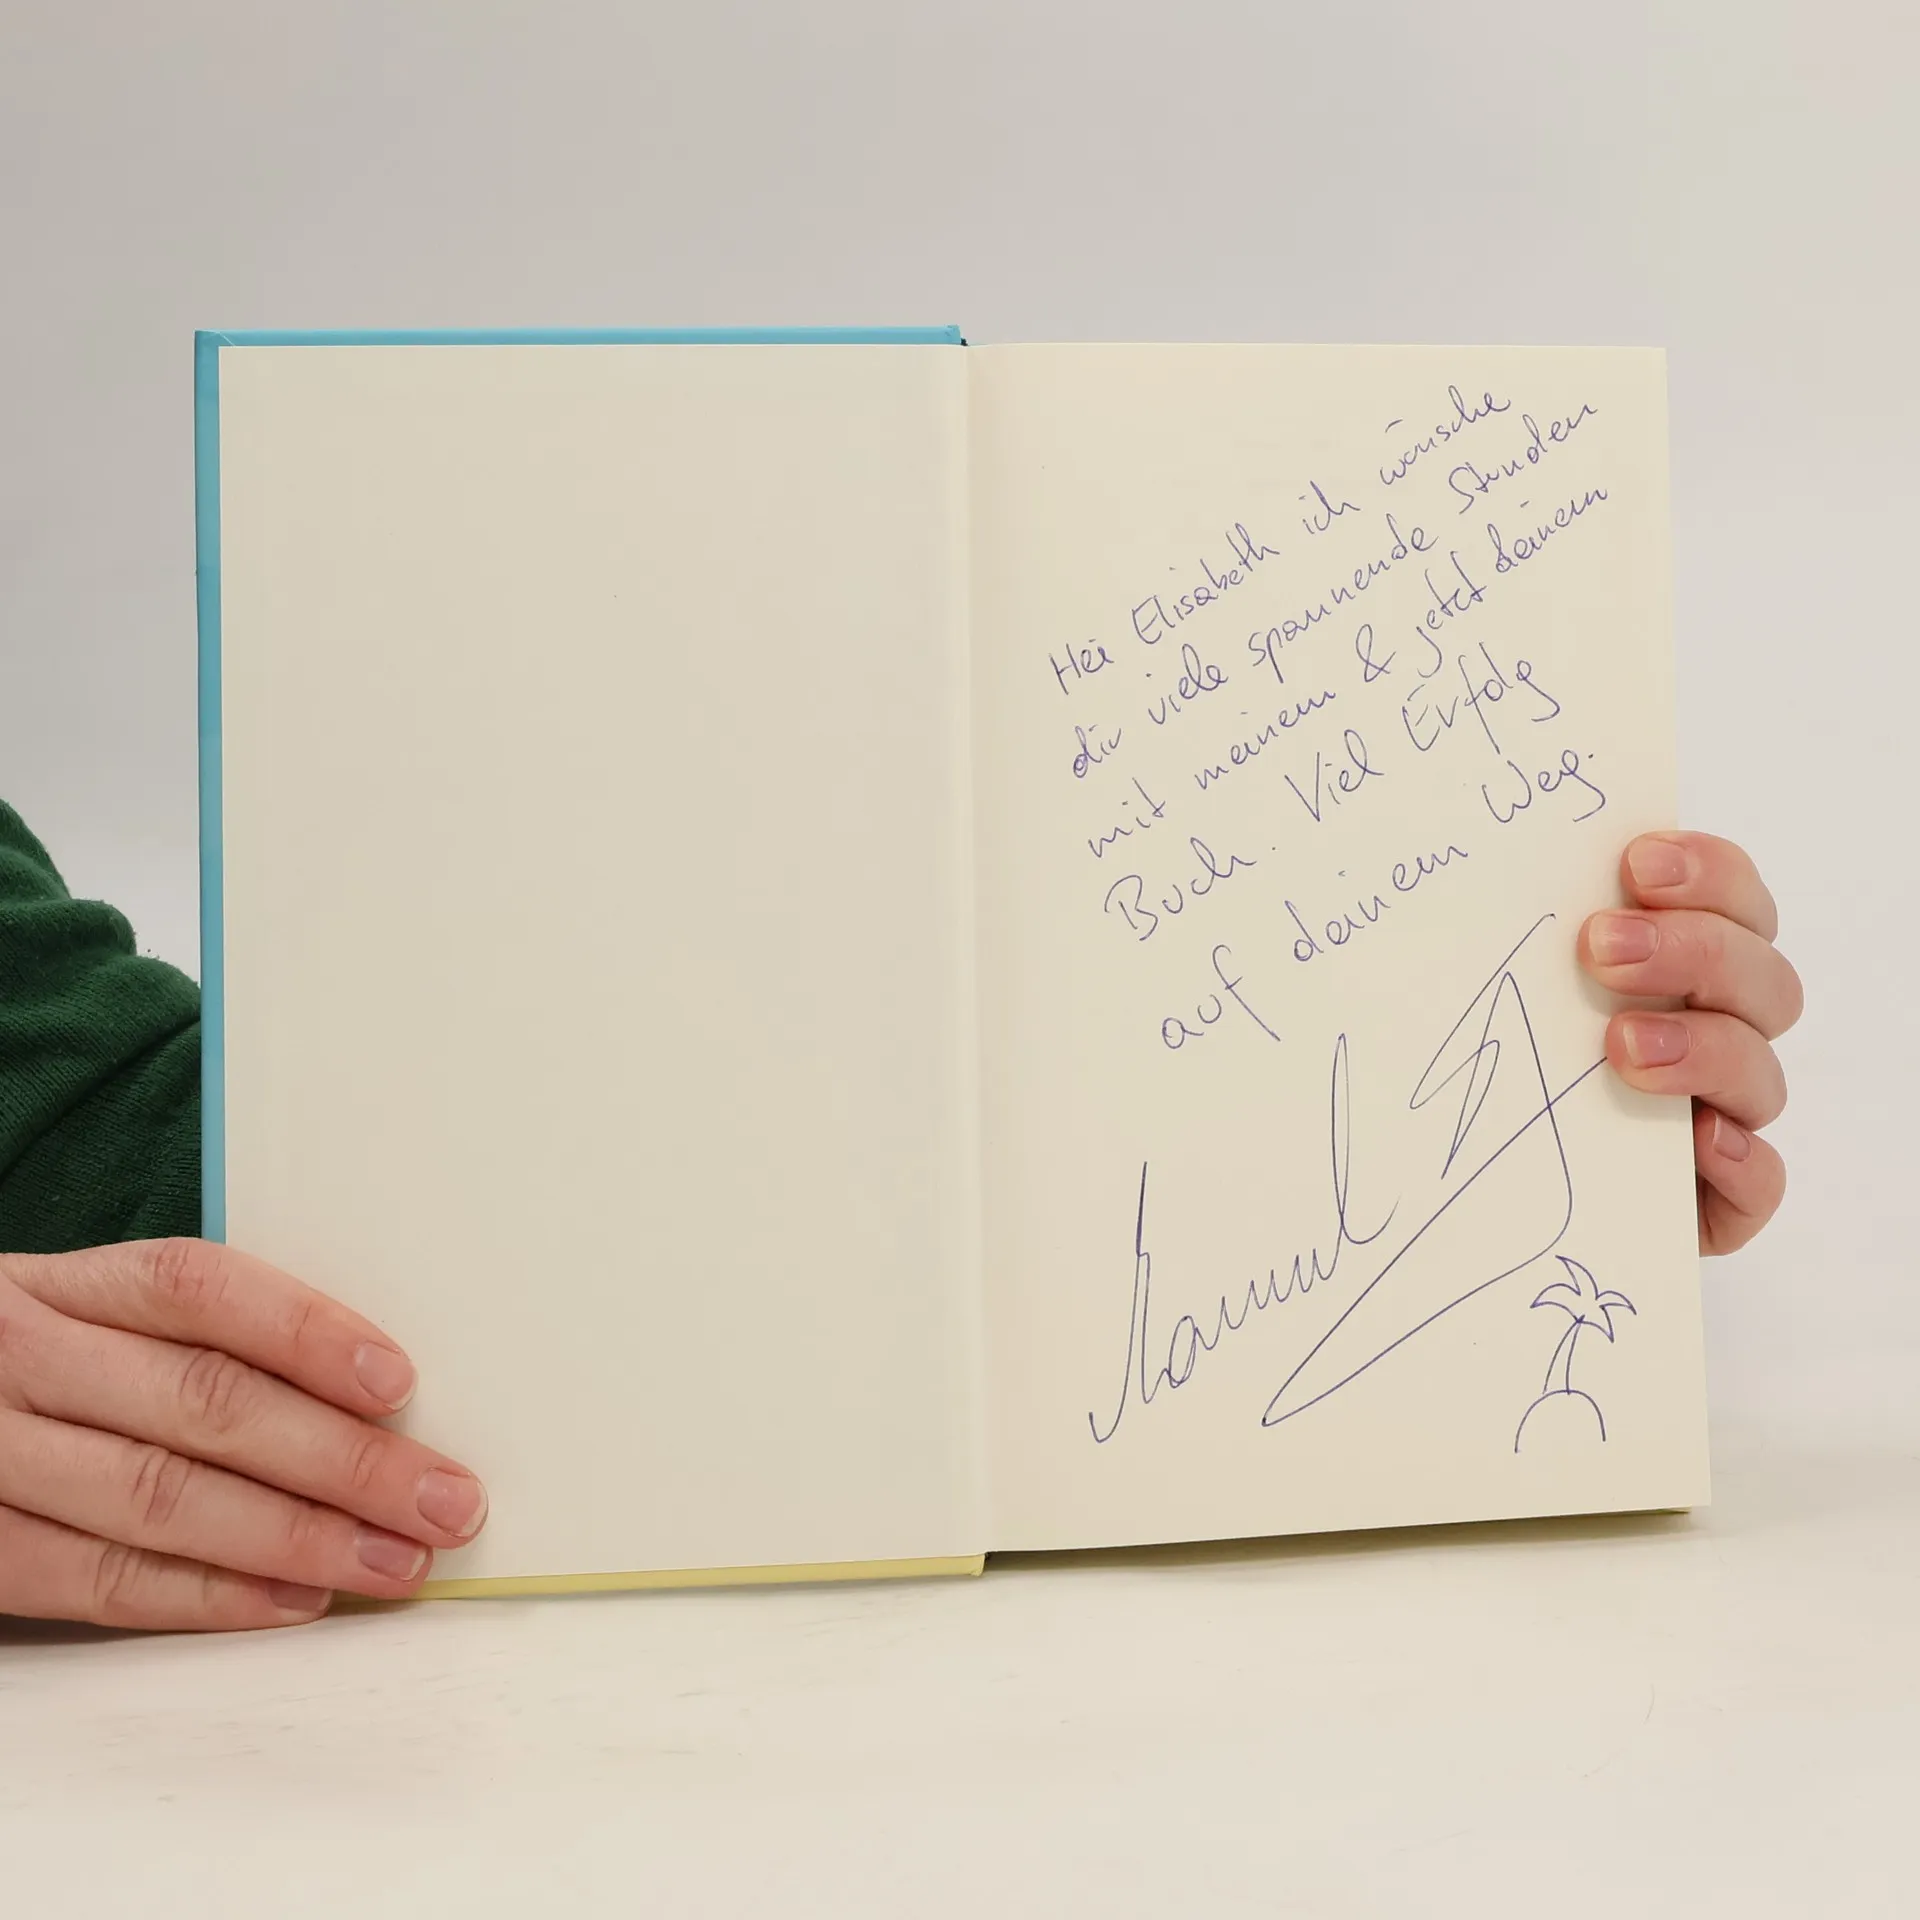 Hei Elisabeth ich wünsche
dir viele spannende Stunden
mit meinem & jetzt deinem
Buch. Viel Erfolg
auf deinem Weg.